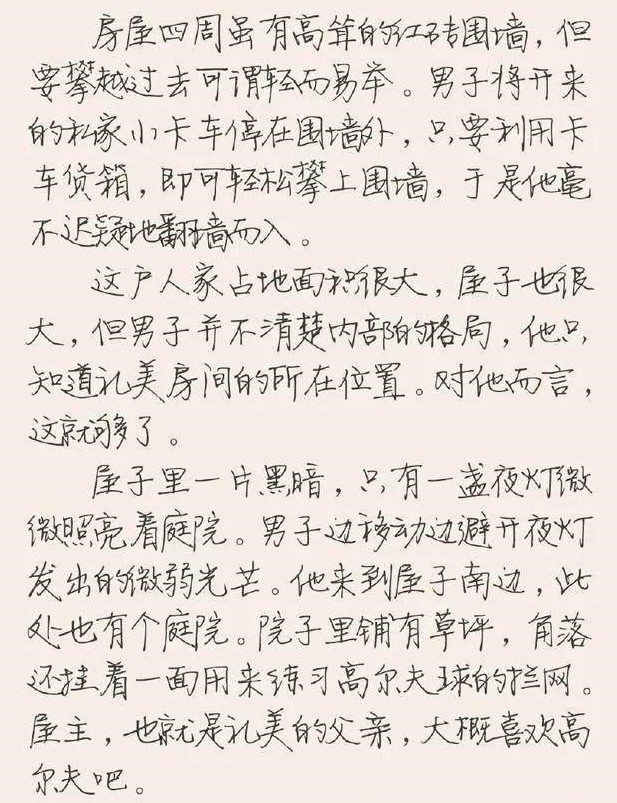 房屋四周虽有高耸的红砖围墙，但
要攀越过去可谓轻而易举。男子将开来
的私家小卡车停在围墙外，只要利用卡
车货箱，即可轻松攀上围墙，于是他毫
不迟疑地翻墙而入。
这户人家占地面积很大，屋子也很
大，但男子并不清楚内部的格局，他只
知道礼美房间的所在位置。对他而言，
这就够了。
屋子里一片黑暗，只有一盏夜灯微
微照亮着庭院。男子边移动边避开夜灯
发出的微弱光芒。他来到屋子南边，此
处也有个庭院。院子里铺有草坪，角落
还挂着一面用来练习高尔夫球的拦网。
屋主，也就是礼美的父亲，大概喜欢高
尔夫吧。